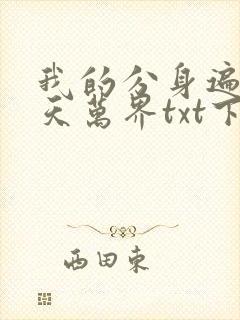 我的分身遍
天萬界txt下
西田東